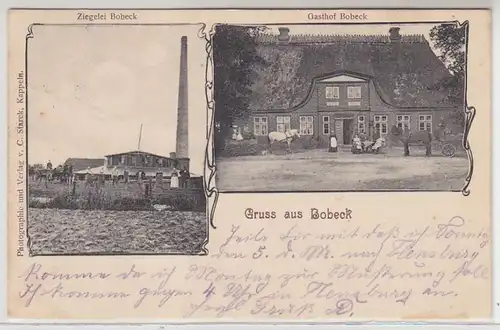 Ziegelei Bobeck
Gasthof Bobeck
Photographie und Verlag v. C. Starck, Kappeln.
Gruss aus Bobeck
Teile dir mit daß ich Sonntag
den 5. d. M. nach Flensburg
komme da ich Montag zur Musterung soll
Ich komme gegen 4 Uhr in Flensburg an.
Gruß